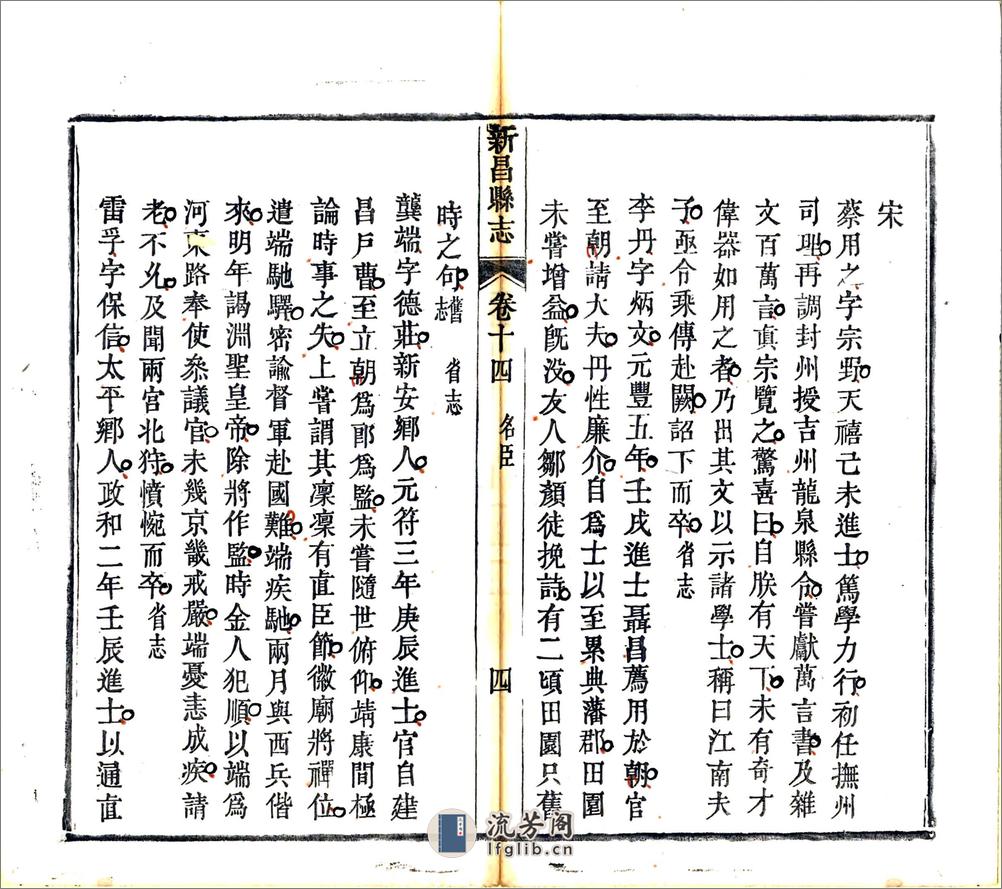 宋
蔡用之字宗野天禧己未進士篤學力行初任撫州
司理再調封州授吉州龍泉縣令嘗獻萬言書及雜
文百萬言眞宗覽之驚喜曰自朕有天下未有奇才
偉器如用之者乃出其文以示諸學士稱曰江南夫
子亟令乘傳赴闕詔下而卒省志
李丹字炳文元豐五年壬戌進士聶昌薦用於朝官
至朝請大夫丹性廉介自爲士以至累典藩郡田園
未嘗增益旣没友人鄒顏徒挽詩有二頃田園只舊
新昌縣志 卷十四 名臣 四
時之句舊志 省志
龔端字德莊新安鄉人元符三年庚辰進士官自建
昌戶曹至立朝爲郎爲監未嘗隨世俯仰靖康間極
論時事之失上嘗謂其凜凜有直臣節徽廟將禪位
遣端馳驛密諭督軍赴國難端疾馳兩月與西兵偕
來明年謁淵聖皇帝除將作監時金人犯順以端爲
河東路奉使叅議官未幾京畿戒嚴端憂恚成疾請
老不允及聞兩宮北狩憤惋而卒省志
雷孚字保信太平鄉人政和二年壬辰進士以通直
流芳阁
lfglib.cn